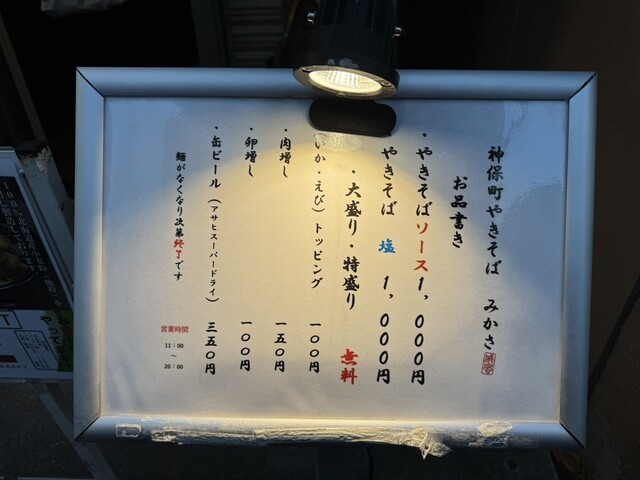 神保町やきそば　みかさ
お品書き
・やきそばソース１，０００円
やきそば　塩　１，０００円
・大盛り・特盛り　無料
（いか・えび）トッピング　一〇〇円
・肉増し　一五〇円
・卵増し　一〇〇円
・缶ビール（アサヒスーパードライ）　三五〇円
麺がなくなり次第終了です
営業時間
11：00
～
20：00